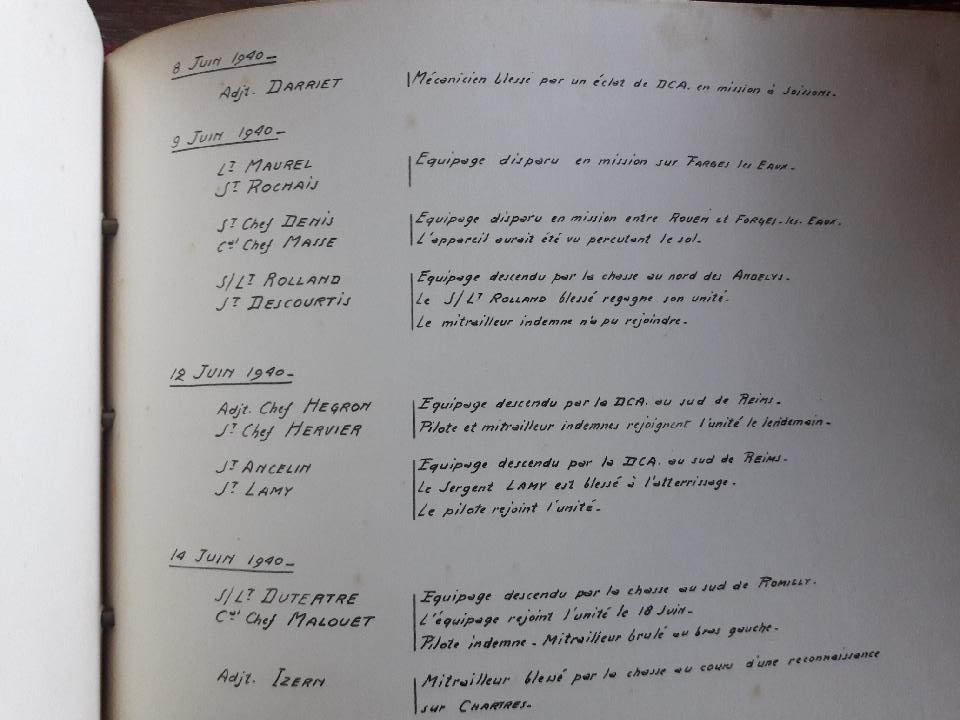 8 Juin 1940-
Adjt. DARRIET Mécanicien blessé par un éclat de DCA. en mission à Soissons.
9 Juin 1940-
Lt MAUREL Equipage disparu en mission sur FARGES les EAUX.
St ROCHAIS
St Chef DENIS Equipage disparu en mission entre ROUEN et FORGES-les-EAUX.
Cal Chef MASSE L'appareil aurait été vu percutant le sol.
S/Lt ROLLAND Equipage descendu par la chasse au nord des ANDELYS.
St DESCOURTIS Le S/Lt ROLLAND blessé regagne son unité.
Le mitrailleur indemne n'a pu rejoindre.
12 Juin 1940-
Adjt. Chef HEGRON Equipage descendu par la DCA. au sud de REIMS.
St Chef HERVIER Pilote et mitrailleur indemnes rejoignent l'unité le lendemain.
St ANCELIN Equipage descendu par la DCA. au sud de REIMS.
St LAMY Le Sergent LAMY est blessé à l'atterrissage.
Le pilote rejoint l'unité.
14 Juin 1940-
S/Lt DUTERTRE Equipage descendu par la chasse au sud de ROMILLY.
Cal Chef MALOUET L'équipage rejoint l'unité le 18 Juin.
Pilote indemne - Mitrailleur brulé au bras gauche.
Adjt. IZERN Mitrailleur blessé par la chasse au cours d'une reconnaissance
sur CHARTRES.